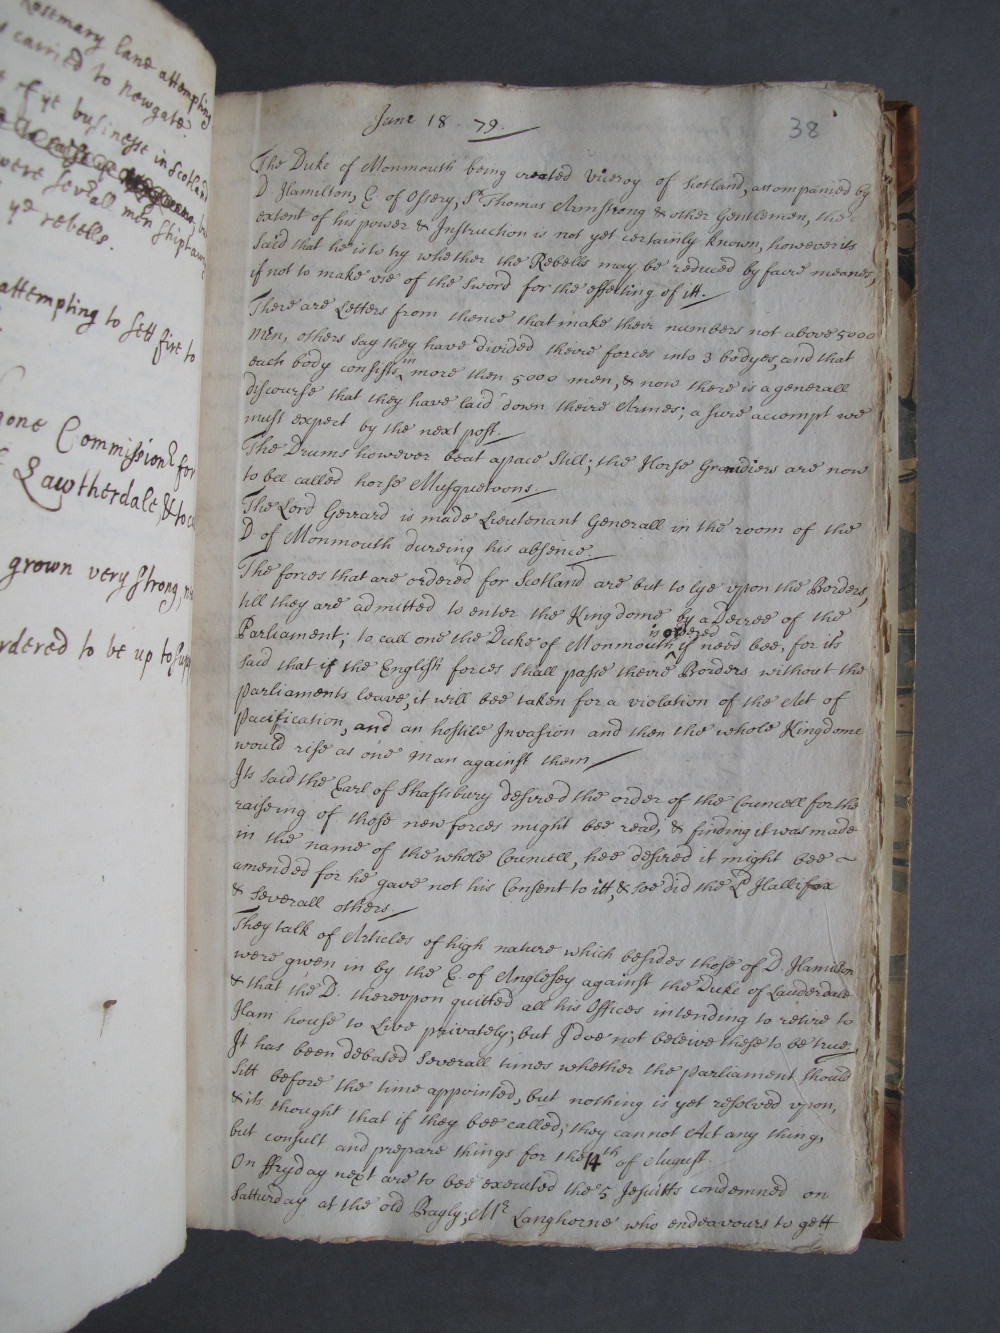 Rosemary lane attempting
carried to Newgate.
of ye business in Scotland
were sev̄all men shipt away
ye rebells.
attempting to sett fire to
gone Commissionr for
Lawtherdale, & to
grown very strong,
rdered to be up to
June 18 - 79.
38
The Duke of Monmouth being created Viceroy of Scotland, accompanied by
D Hamilton, E of Ossery, Sr Thomas Armstrong & other Gentlemen, the
extent of his power & Instruction is not yet certainly known, however its
said that he is to try whether the Rebells may be reduced by faire meanes,
if not to make use of the sword for the effecting of itt.
There are Letters from thence that make their numbers not above 5000
men, others say they have divided theire forces into 3 bodyes, and that
each body consists in more then 5000 men, & now there is a generall
discourse that they have laid down theire Armes; a sure accompt we
must expect by the next post.
The Drums however beat apace still; the Horse Granadiers are now
to bee called horse Musquetoons.
The Lord Gerrard is made Lieutenant Generall in the room of the
D of Monmouth dureing his absence.
The forces that are ordered for Scotland are but to lye upon the Borders,
till they are admitted to enter the Kingdome by a Decree of the
Parliament; to call one the Duke of Monmouth is ordered if need bee, for its
said that if the English forces shall passe theire Borders without the
parliaments leave, it will bee taken for a violation of the Act of
Pacification, and an hostile Invasion and then the whole Kingdome
would rise as one man against them
Its said the Earl of Shaftsbury desired the order of the Councell for the
raiseing of those new forces might bee read, & finding it was made
in the name of the whole Councell, hee desired it might bee ~
amended for he gave not his Consent to itt, & soe did the Ld Hallifax
& severall others
They talk of Articles of high nature which besides those of D. Hamilton
were given in by the E. of Anglesey against the Duke of Lauderdale
& that the D. thereupon quitted all his Offices intending to retire to
Ham house to Live privately; but I doe not beleive these to be true
It has been debated severall times whether the parliament should
sitt before the time appointed, but nothing is yet resolved upon,
& its thought that if they bee called; they cannot Act any thing,
but consult and prepare things for the 14th of August.
On ffryday next are to bee executed the 5 Jesuitts condemned on
Satturday at the old Bayly; Mr Langhorne who endeavours to gett